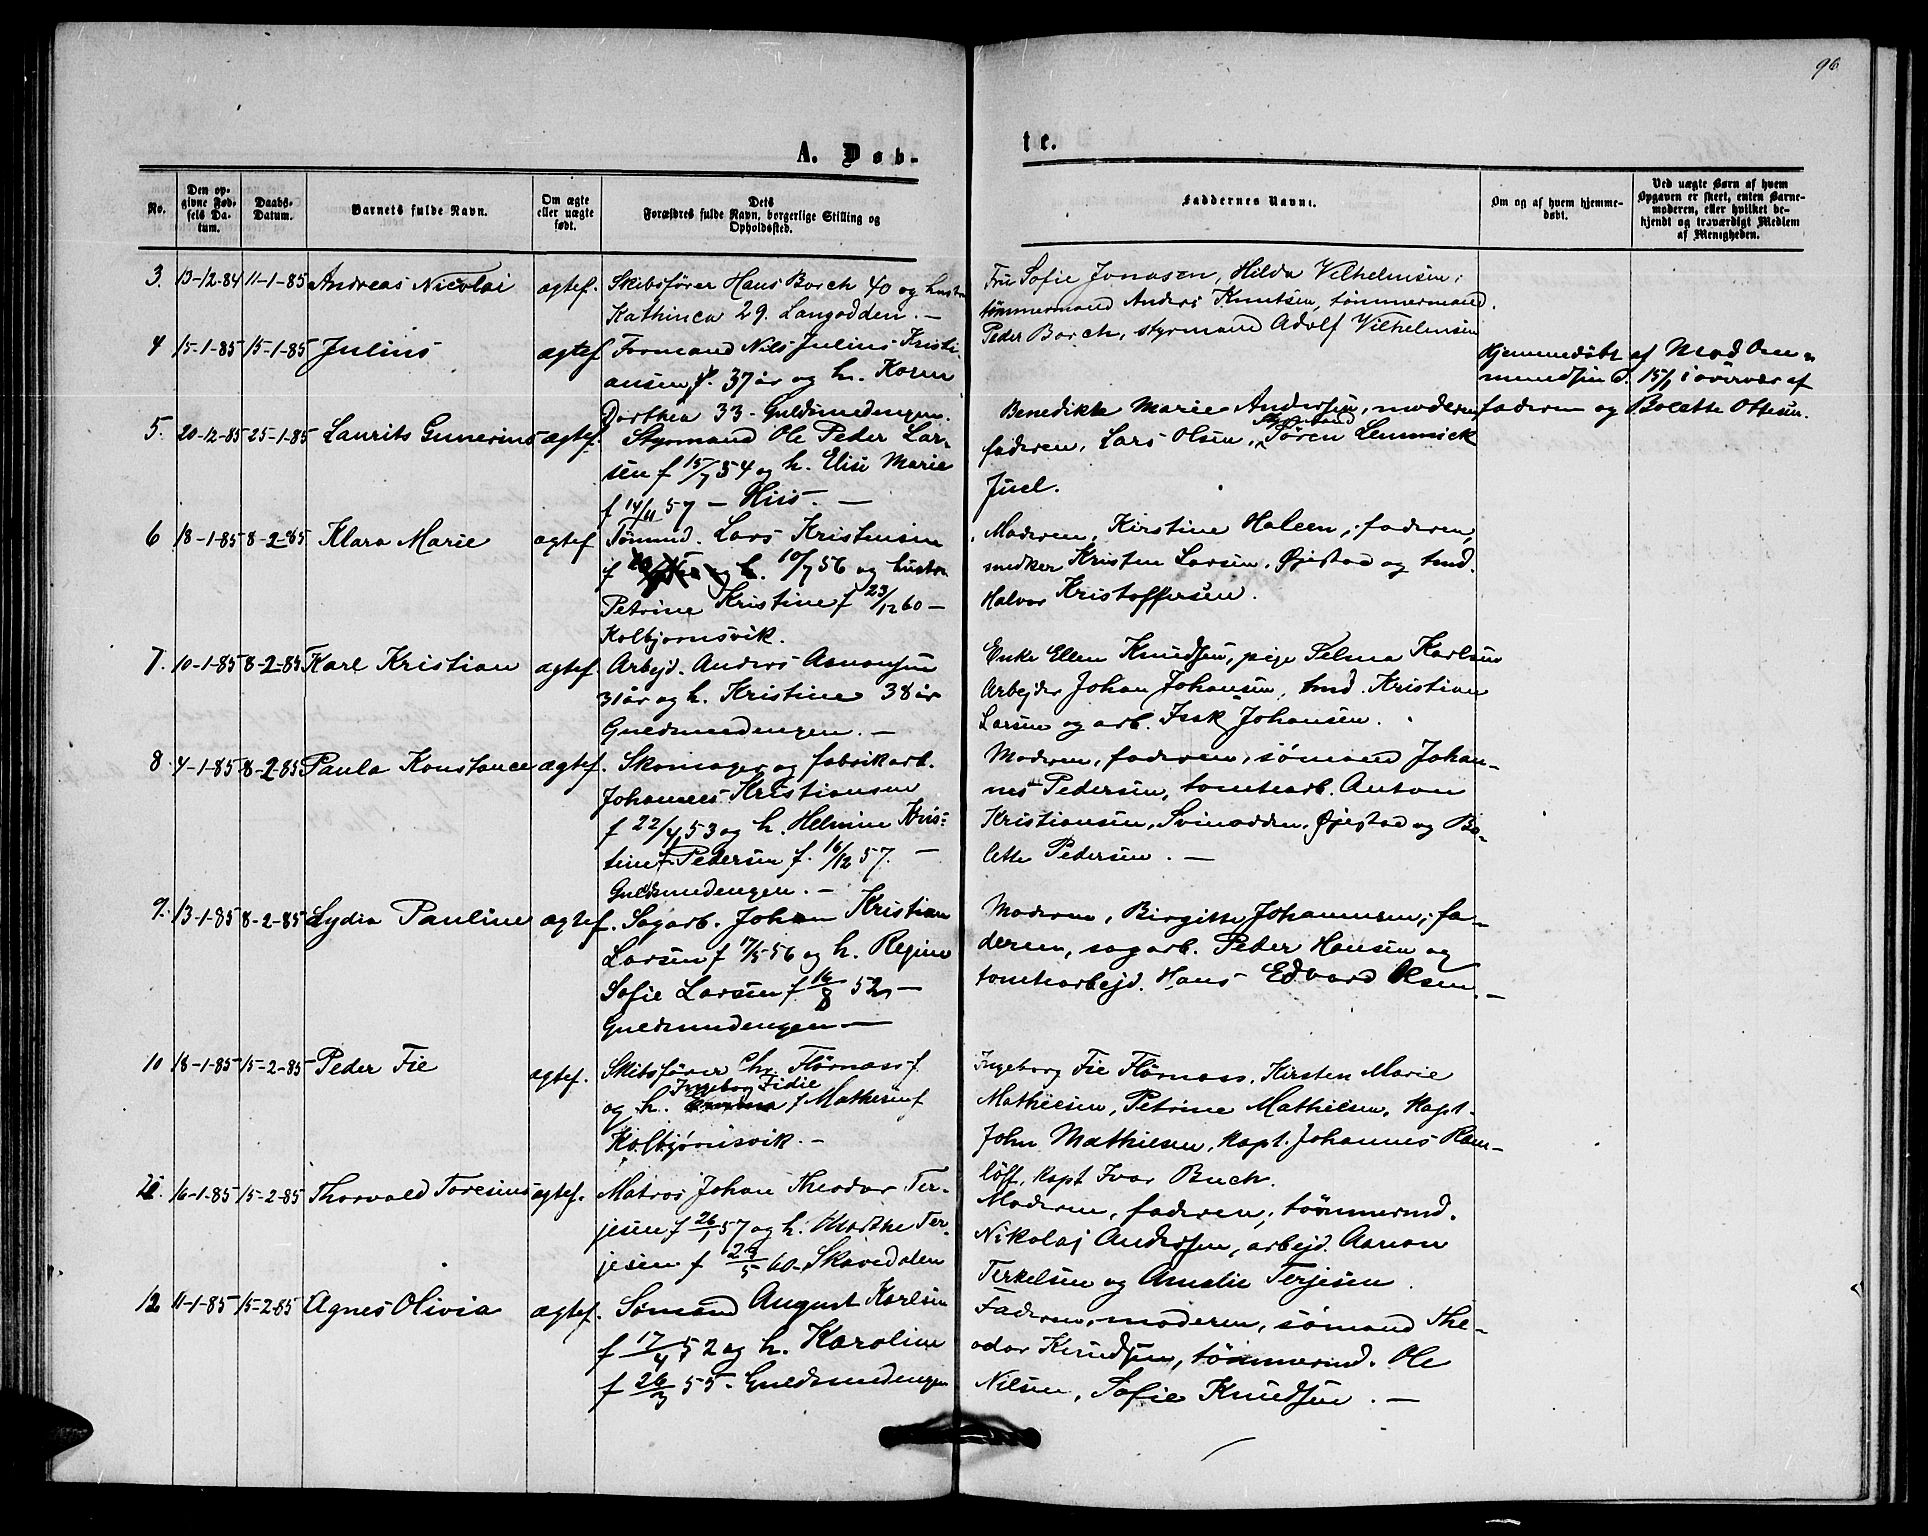 96
A. Døb-
te.
No.
Den op-
givne Fød-
sels Da-
tum.
Daabs-
Datum.
Barnets fulde Navn.
Om ægte
eller uægte
født.
Dets
Forældres fulde Navn, borgerlige Stilling og
Opholdssted.
Faddernes Navne.
Om og af hvem hjemme-
døbt.
Ved uægte Børn af hvem
Opgaven er skeet, enten Barne-
moderen, eller hvilket be-
kjendt og troværdigt Medlem
af Menigheden.
3. 13-12-84 11-1-85 Andreas Nicolai ægtef. Skibsfører Hans Borch 40 og hustru
Kathinca 29. Langodden. —
Fru Sofie Jonasen, Hilda Vilhelmsen,
tømmermand Anders Knutsen, tømmermand
Peder Borch, styrmand Adolf Vilhelmsen
4 15-1-85 15-1-85 Julius ægtef Formand Nils Julius Kristi-
ansen f. 37 år og h. Karen
Dorthea 33 - Guldsmedengen.
Hjemmedøbt af Mad Om-
mundsen d. 15/1 i overvær af
faderen og Bolette Ottesen.
5. 20-12-85 25-1-85 Laurits Gunerius ægtef. Styrmand Ole Peder Lar-
sen f 15/7 54 og h. Elise Marie
f 14/11 57 — His. —
Benedikte Marie Andersen, moderen
faderen, Lars Olsen, Styrmand Søren Lemmick
Juel.
6 18-1-85 8-2-85 Klara Marie ægtef Tømmd. Lars Kristensen
f og h. 10/7 56 og hustru
Petrine Kristine f 23/12 60 —
Kolbjørnsvik.
Moderen, Kirstine Haleen, faderen,
snedker Kristen Larsen, Øjestad og tmd.
Halvor Kristoffersen.
7. 10-1-85 8-2-85 Karl Kristian ægtef. Arbejd. Anders Aanonsen
31 år og h. Kristine 38 år
Guldsmedengen. —
Enke Ellen Knudsen, pige Selma Karlsen
Arbejder Johan Johansen, tmd. Kristian
Larsen og arb. Isak Johansen.
8. 4-1-85 8-2-85 Paula Konstance ægtef. Skomager og fabrikarb.
Johannes Kristiansen
f 22/4 53 og h. Helmine Kris-
tine f. Pedersen f. 16/12 57. —
Guldsmedengen. —
Moderen, faderen, sømand Johan-
nes Pedersen, tomtearb. Anton
Kristiansen, Svinodden, Øjestad og Bo-
lette Pedersen. —
9. 13-1-85 8-2-85 Lydia Pauline ægtef. Sagarb. Johan Kristian
Larsen f 17/5 56 og h. Regine
Sofie Larsen f 16/8 52 —
Guldsmedengen —
Moderen, Birgitte Johannesen, fa-
deren, sagarb. Peder Hansen og
tomtearbejd. Hans Edvard Olsen. —
10 18-1-85 15-2-85 Peder Fie ægtef. Skibsfører Chr. Flørnæss f.
og h. Ingeborg Fidie f Mathesen f
Kolbjørnsvik. —
Ingeborg Fie Flørnæss, Kirsten Marie
Mathiesen, Petrine Mathilsen, Kapt.
John Mathiesen, Kapt. Johannes Ram-
løff, Kapt Ivar Buch.
11 16-1-85 15-2-85 Thorvald Toresius ægtef. Matros Johan Theodor Ter-
jesen f 26/1 57 og h. Marthe Ter-
jesen f 29/5 60 - Skaredalen
Moderen, faderen, tømmermd.
Nikolaj Andersen, arbejd. Aanon
Terkelsen og Amalie Terjesen.
12 11-1-85 15-2-85 Agnes Olivia ægtef. Sømand August Karlsen
f 17/4 52 og h. Karoline
f 26/3 55 - Guldsmedengen
Faderen, moderen, sømand The-
odor Knudsen, tømmermd. Ole
Nilsen, Sofie Knudsen. —